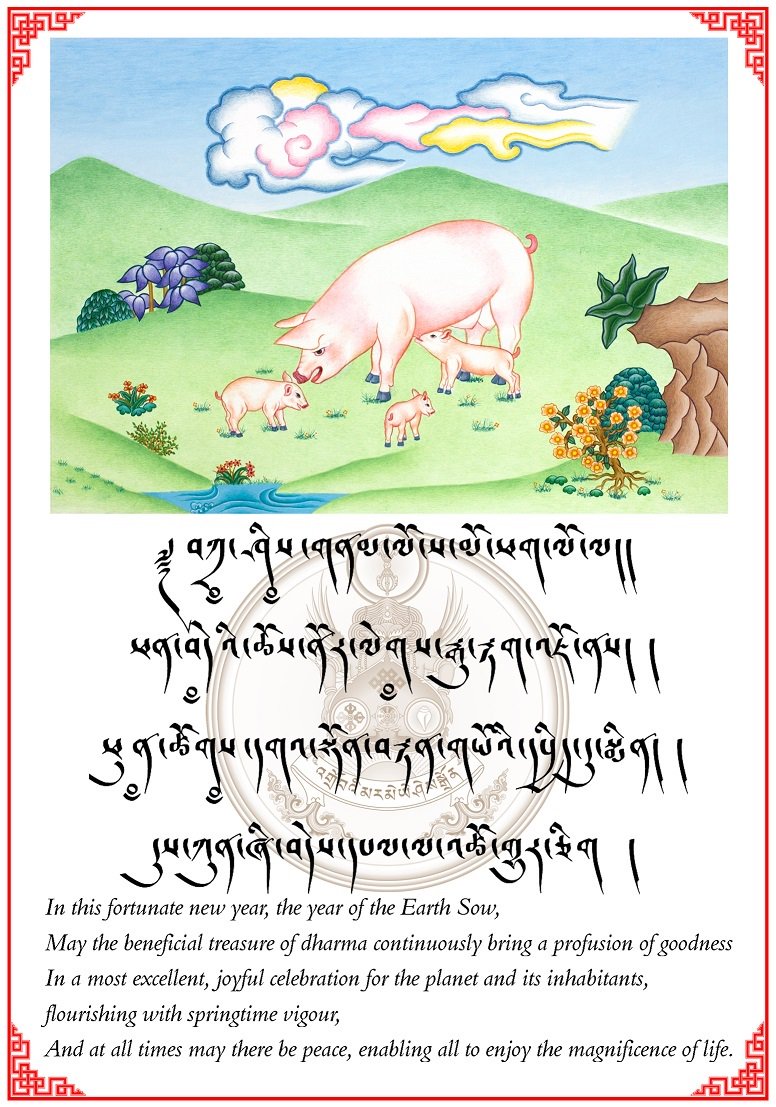 ༄༅ བཀྲ་ཤིས་གནམ་ལོ་ས་མོ་ཕག་ལོ་ལ།།
ཕན་བདེའི་ཆོས་ནོར་ལེགས་
ཕུན་ཚོགས་དགའ་སྟོན་བརྟན་གཡོའི་དཔྱིད་དུ་སྨིན། །
དུས་ཀུན་ཞི་བདེས་དཔལ་ལ་འཚོ་གྱུར་ཅིག །
In this fortunate new year, the year of the Earth Sow,
May the beneficial treasure of dharma continuously bring a profusion of goodness
In a most excellent, joyful celebration for the planet and its inhabitants,
flourishing with springtime vigour,
And at all times may there be peace, enabling all to enjoy the magnificence of life.